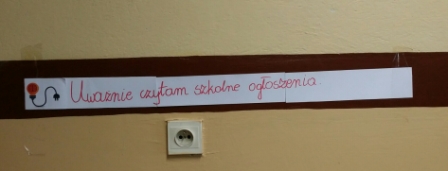 Uważnie czytam szkolne ogłoszenia.